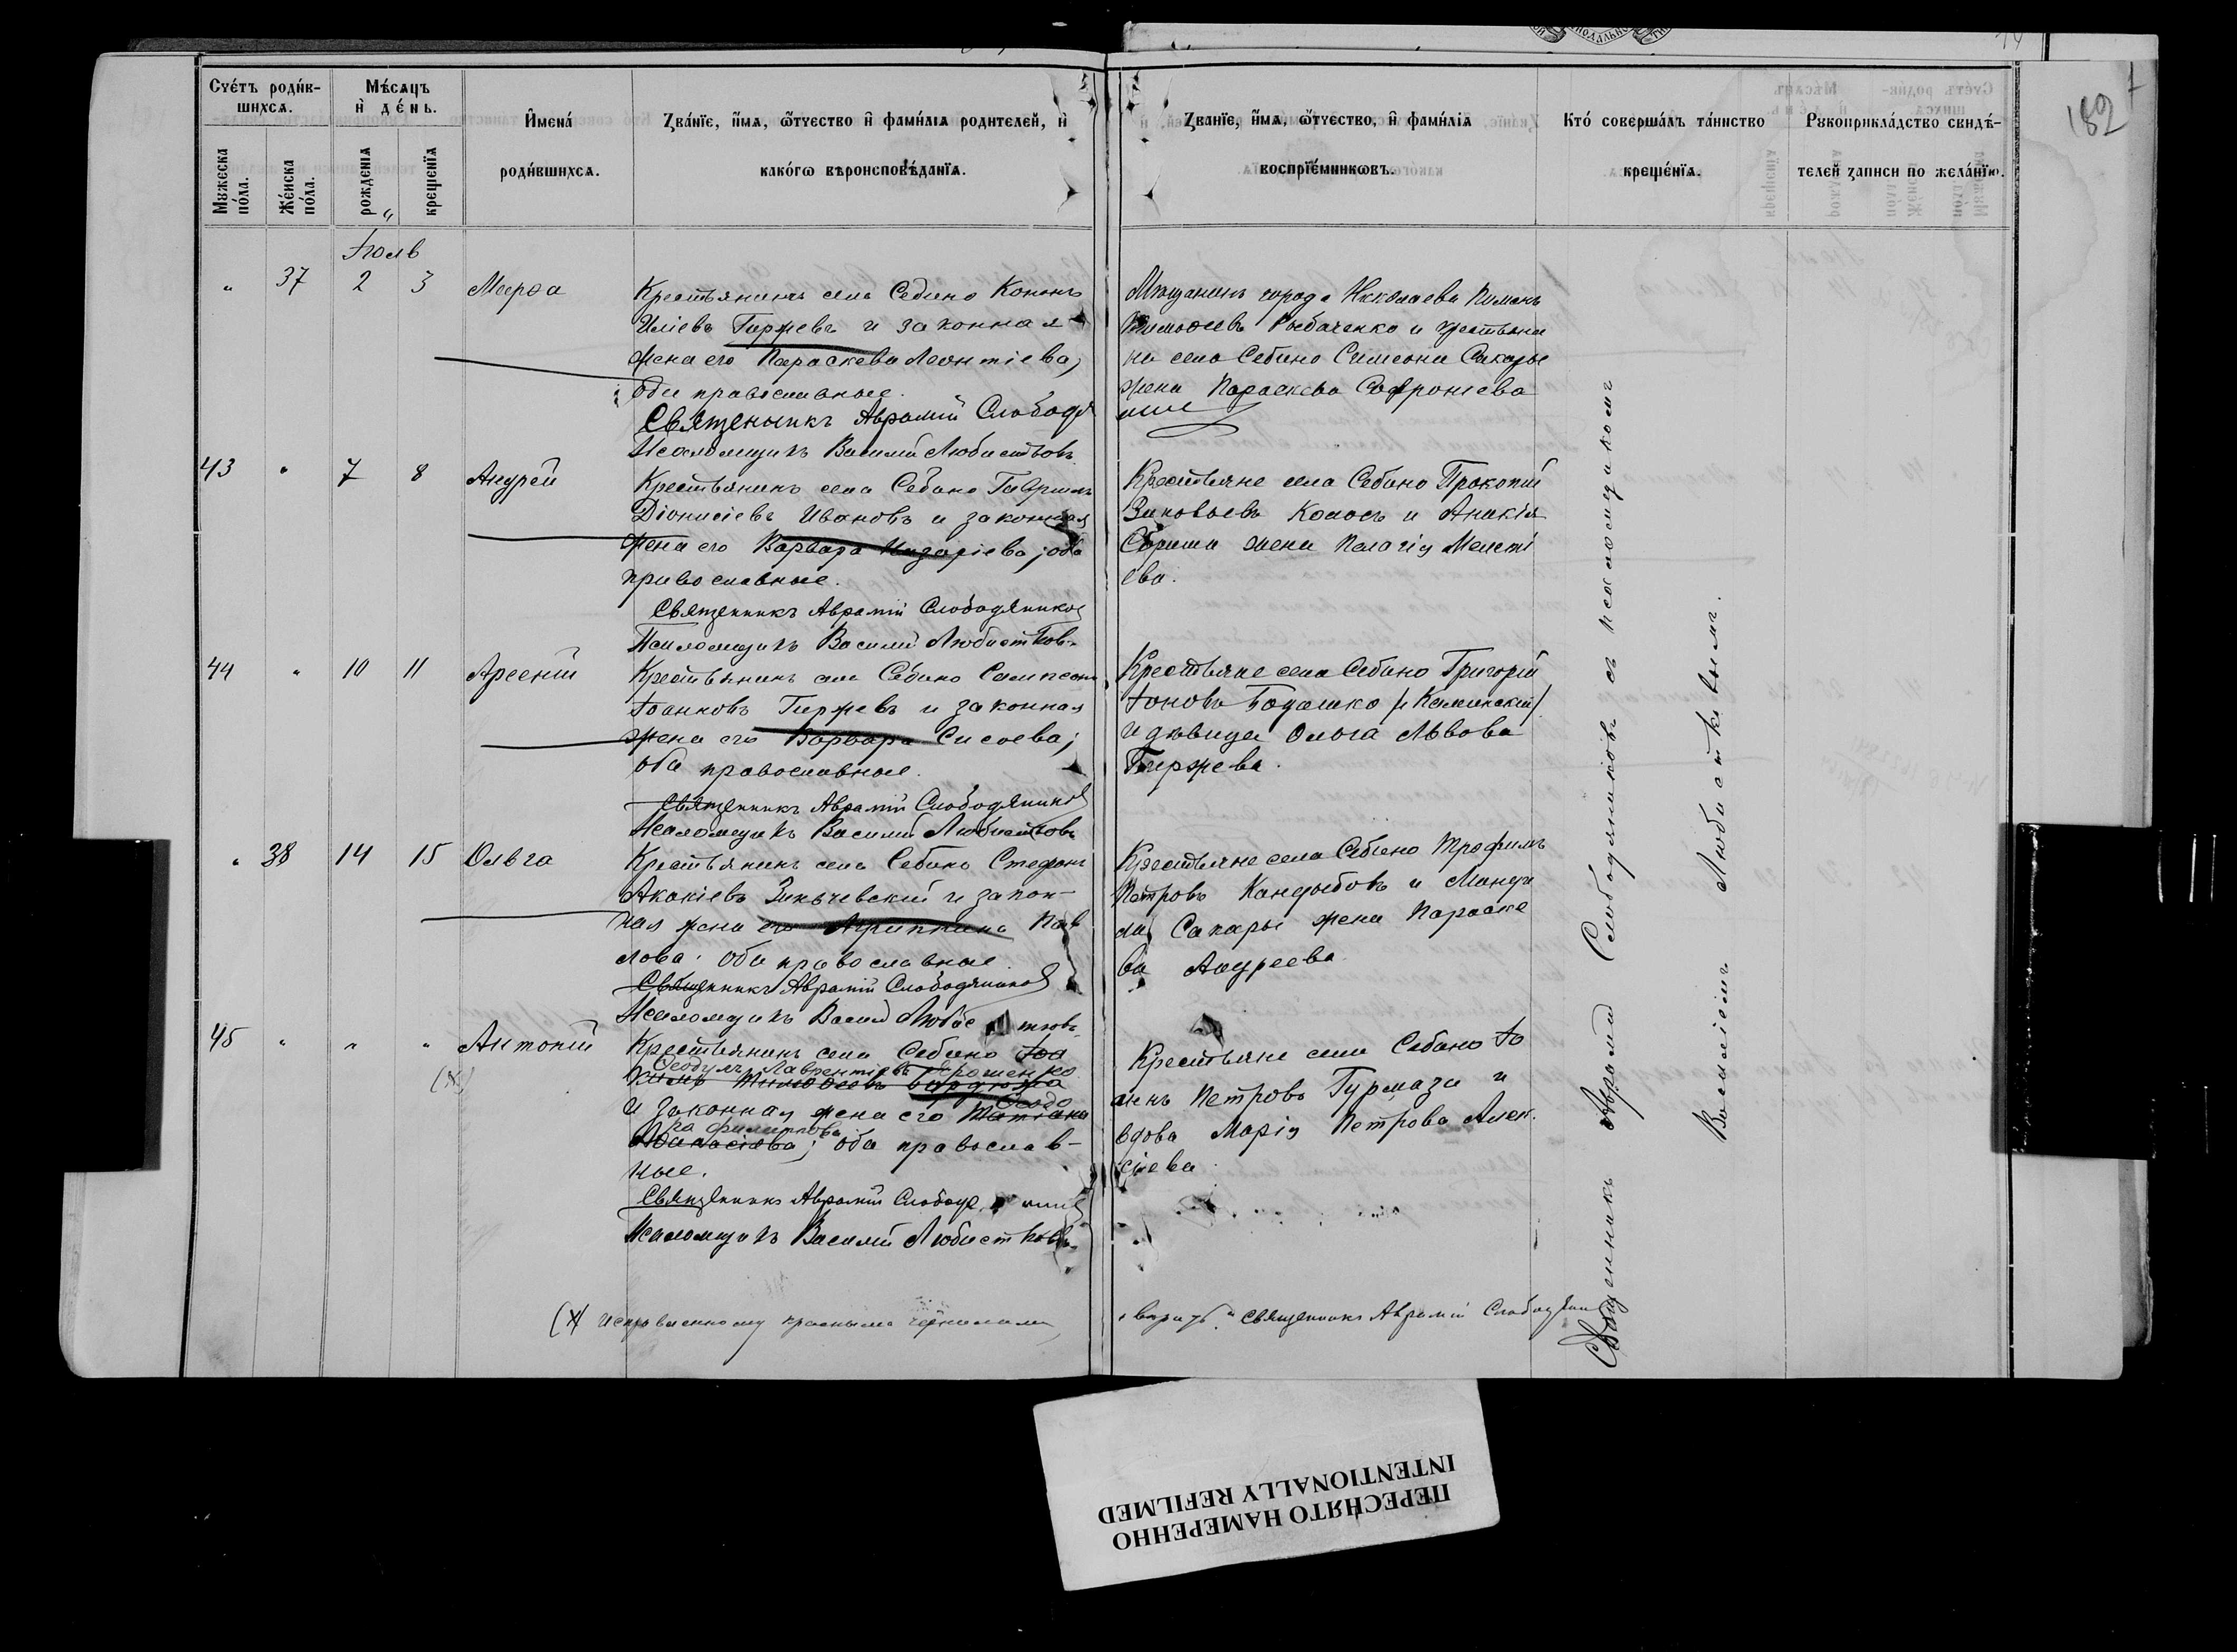 Счетъ родив-
шихся.
Мѣсяцъ
и день.
Имена
родившихся.
Званіе, имя, отчество и фамилія родителей, и
какого вѣроисповѣданія.
Мужеска пола.
Женска пола.
рожденія
крещенія
Званіе, имя, отчество, и фамилія
воспріемниковъ.
Кто совершалъ таинство
крещенія.
Рукоприкладство свидѣ-
телей записи по желанію.
182
Іюль
" 37 2 3 Марѳа
Крестьянинъ села Себино Кононъ
Иліевъ Гиржевъ и законная
жена его Параскева Леонтіева,
оба православные.
Священникъ Аврамій Слободя
Псаломщикъ Василій Любистковъ
Мѣщанинъ города Николаева Пименъ
Тимоѳеевъ Рыбаченко и крестьяни
на села Себино Симеона Сакары
жена Параскева Софроніева
43 " 7 8 Андрей
Крестьянинъ села Себино Гавріилъ
Діонисіевъ Ивановъ и законная
жена его Варвара Назаріева; оба
православные.
Священникъ Аврамій Слободяниковъ
Псаломщикъ Василій Любистковъ
Крестьяне села Себино Прокопій
Зиновьевъ Колосъ и Аникія
жена Пелагія
ева.
44 " 10 11 Арсеній
Крестьянинъ села Себино Сампсонъ
Іоанновъ Гиржевъ и законная
жена его Варвара Сисоева;
оба православные.
Священникъ Аврамій Слободяниковъ
Псаломщикъ Василій Любистковъ
Крестьяне села Себино Григорій
Іоновъ Бодашко (Каминскій)
и дѣвица Ольга Львова
Гиржева.
" 38 14 15 Ольга
Крестьянинъ села Себино Стефанъ
Акакіевъ Зиньчевскій и закон-
ная жена его Агрипина Пав
лова. Оба православные.
Священникъ Аврамій Слободяниковъ
Псаломщикъ Василій Любистковъ
Крестьяне села Себино Трофимъ
Петровъ Кандыбовъ и
Сакары жена Параске
ва Андреева
45 " " " Антоній
(х)
Крестьянинъ села Себино Іоа
Ѳеодулъ Лаврентіевъ Ярошенко
кимъ Тимоѳеевъ
и законная жена его Татіана
Ѳеодо
ра Филиппова
Аѳанасіева; оба православ-
ные.
Священникъ Аврамій Слободяниковъ
Псаломщикъ Василій Любистковъ
Крестьяне села Себино Іо
аннъ Петровъ Гурмаза и
вдова Марія Петрова Алек
сіева
(х) Исправленному красными чернилами
"вѣрить". Священникъ Аврамій Слободяни
Священникъ Аврамій Слободяниковъ съ псаломщикомъ
Василіемъ Любистковымъ.
ПЕРЕСНЯТО НАМЕРЕННО
INTENTIONALLY REFILMED